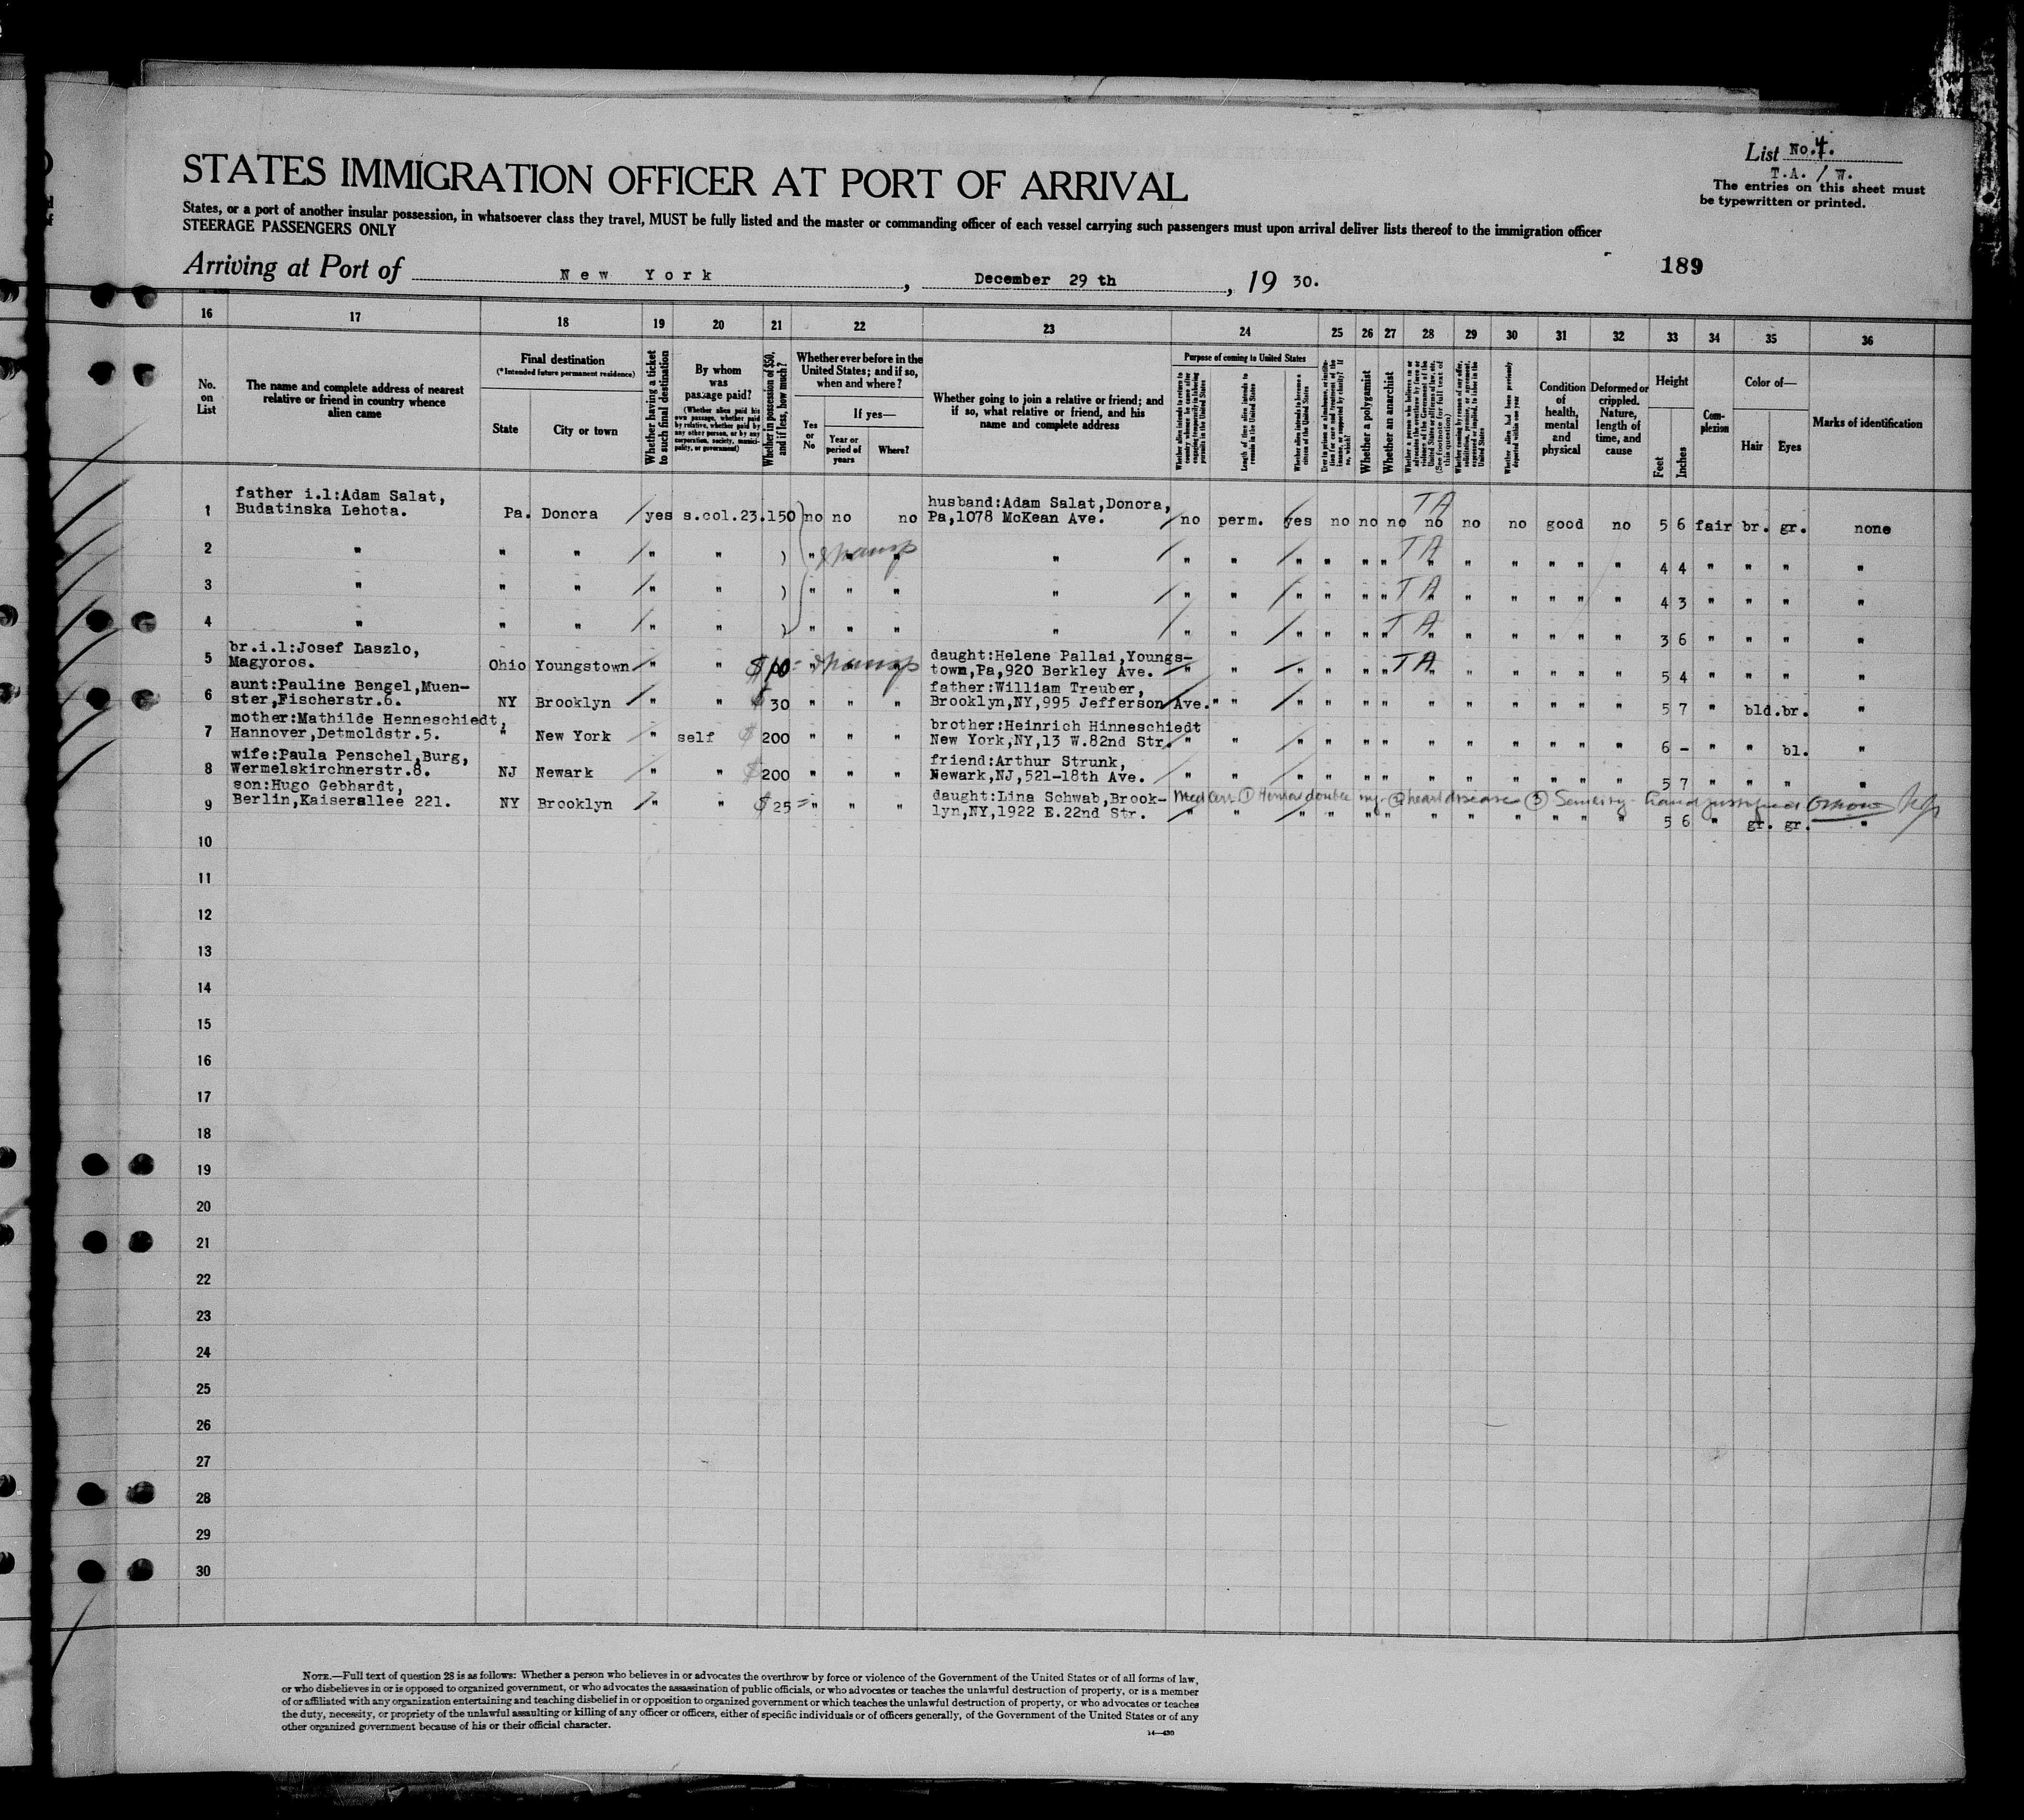 List No.4.
T.A. / W.
The entries on this sheet must
be typewritten or printed.
STATES IMMIGRATION OFFICER AT PORT OF ARRIVAL
States, or a port of another insular possession, in whatsoever class they travel, MUST be fully listed and the master or commanding officer of each vessel carrying such passengers must upon arrival deliver lists thereof to the immigration officer
STEERAGE PASSENGERS ONLY
189
Arriving at Port of New York, December 29 th, 19 30.
16 17 18 19 20 21 22 23 24 25 26 27 28 29 30 31 32 33 34 35 36
No.
on
List
The name and complete address of nearest
relative or friend in country whence
alien came
Final destination
(*Intended future permanent residence)
State
City or town
Whether having a ticket
to such final destination
By whom
was
passage paid?
(Whether alien paid his
own passage, whether paid
by relative, whether paid by
any other person, or by any
corporation, society, munici-
pality, or government)
Whether in possession of $50,
and if less, how much?
Whether ever before in the
United States; and if so,
when and where?
Yes
or
No
If yes—
Year or
period of
years
Where?
Whether going to join a relative or friend; and
if so, what relative or friend, and his
name and complete address
Purpose of coming to United States
Whether alien intends to return to
country whence he came after
engaging temporarily in laboring
pursuits in the United States
Length of time alien intends to
remain in the United States
Whether alien intends to become a
citizen of the United States
Whether a polygamist
Whether an anarchist
Whether alien had been previously
deported within one year
Condition
of
health,
mental
and
physical
Deformed or
crippled.
Nature,
length of
time, and
cause
Height
Feet
Inches
Com-
plexion
Color of—
Hair
Eyes
Marks of identification
1 father i.l:Adam Salat,
Budatinska Lehota. Pa. Donora yes s.col.23. 150 no no no husband:Adam Salat,Donora,
Pa,1078 McKean Ave. no perm. yes no no no TA no no no good no 5 6 fair br. gr. none
2 " " " " " ) " " " " " " " " " " TA " " " " " " 4 4 " " " "
3 " " " " " ) " " " " " " " " " " TA " " " " " " 4 3 " " " "
4 " " " " " ) " " " " " " " " " " TA " " " " " " 3 6 " " " "
5 br.i.l:Josef Laszlo,
Magyoros. Ohio Youngstown " " $10 " " " daught:Helene Pallai,Youngs-
town,Pa,920 Berkley Ave. " " " " " " TA " " " " " " 5 4 " " " "
6 aunt:Pauline Bengel,Muen-
ster,Fischerstr.6. NY Brooklyn " " $30 " " " father:William Treuber,
Brooklyn,NY,995 Jefferson Ave. " " " " " " " " " " " " 5 7 " bld. br. "
7 mother:Mathilde Henneschiedt,
Hannover,Detmoldstr.5. " New York " self $200 " " " brother:Heinrich Hinneschiedt
New York,NY,13 W.82nd Str. " " " " " " " " " " " " 6 - " " bl. "
8 wife:Paula Penschel,Burg,
Wermelskirchnerstr.8. NJ Newark " " $200 " " " friend:Arthur Strunk,
Newark,NJ,521-18th Ave. " " " " " " " " " " " " 5 7 " " " "
9 son:Hugo Gebhardt,
Berlin,Kaiserallee 221. NY Brooklyn " " $25 " " " daught:Lina Schwab,Brook-
lyn,NY,1922 E.22nd Str. Med cert ① Hernia double ② heart disease ③ Senility
" " " " " " " " " " " " 5 6 " gr. gr. "
10
11
12
13
14
15
16
17
18
19
20
21
22
23
24
25
26
27
28
29
30
NOTE.—Full text of question 28 is as follows: Whether a person who believes in or advocates the overthrow by force or violence of the Government of the United States or of all forms of law,
or who disbelieves in or is opposed to organized government, or who advocates the assassination of public officials, or who advocates or teaches the unlawful destruction of property, or is a member
of or affiliated with any organization entertaining and teaching disbelief in or opposition to organized government or which teaches the unlawful destruction of property, or who advocates or teaches
the duty, necessity, or propriety of the unlawful assaulting or killing of any officer or officers, either of specific individuals or of officers generally, of the Government of the United States or of any
other organized government because of his or their official character.
14—430